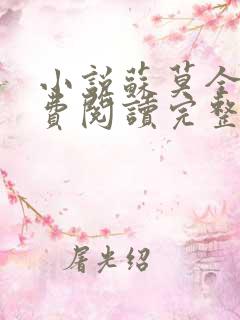 小說蘇莫全
費閱讀完整
屠光绍